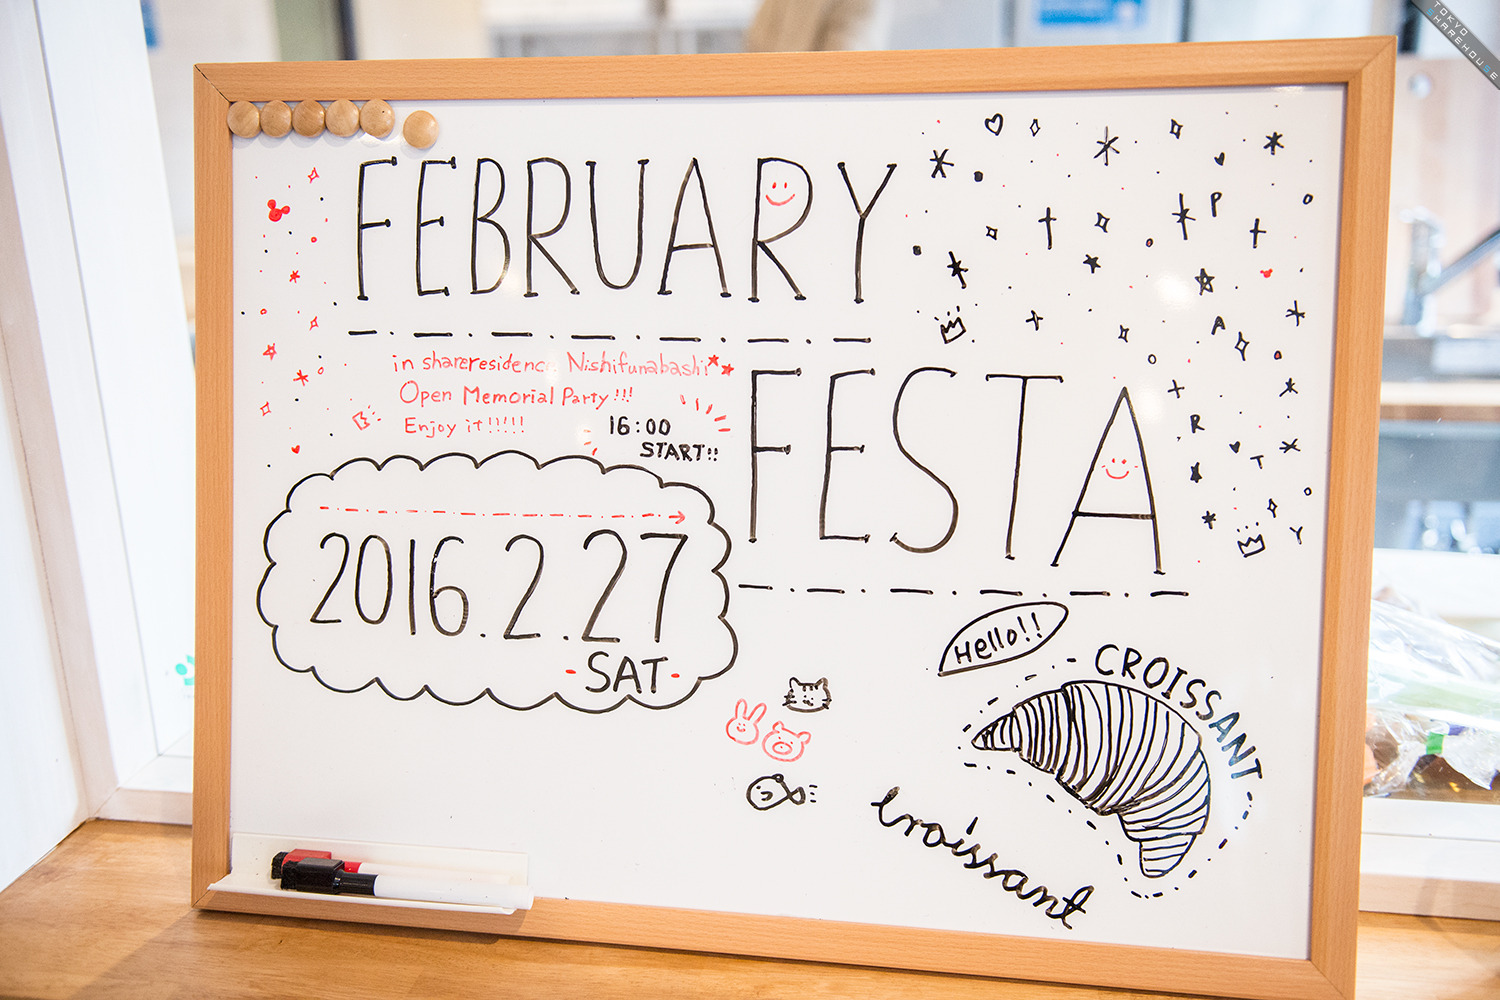 TOKYO
SHAREHOUSE
FEBRUARY
in shareresidence Nishifunabashi
Open Memorial Party!!!
Enjoy it!!!!!
16:00
START!!
FESTA
P
A
R
T
Y
2016.2.27
-SAT-
Hello!!
CROISSANT
croissant